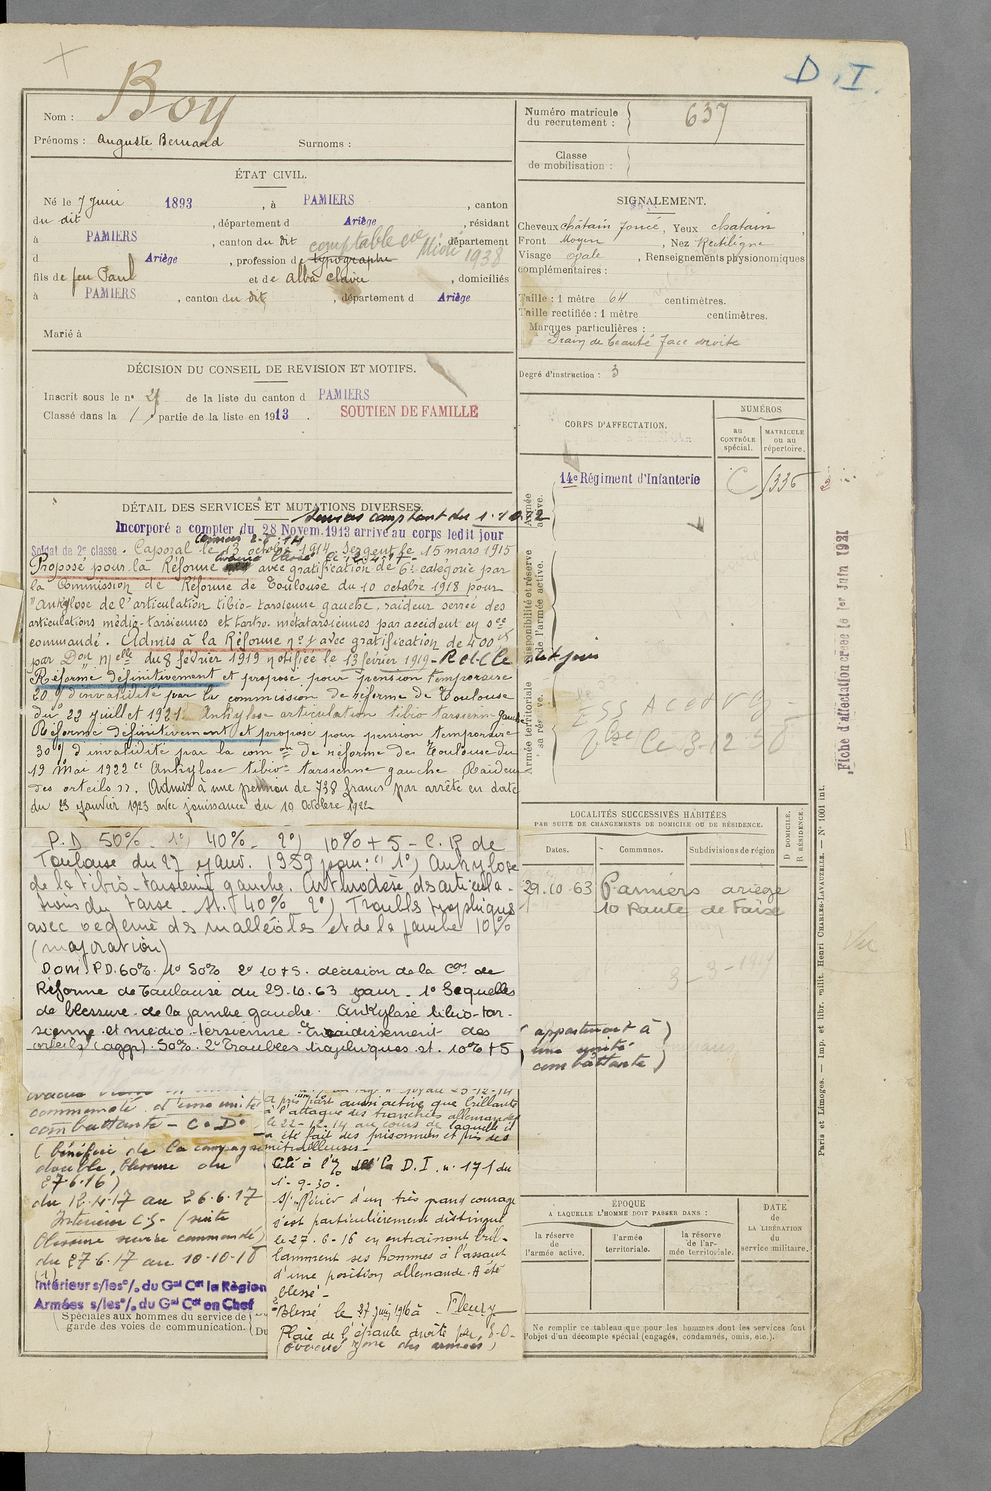 D.I.
Nom : Boy
Prénoms : Auguste Bernard Surnoms :
ÉTAT CIVIL.
Né le 7 Juin 1893, à PAMIERS, canton
du dit, département d Ariège, résidant
à PAMIERS, canton du dit, département
d Ariège, profession de typographe comptable en 1938
fils de feu Paul et de Alba Claire, domiciliés
à PAMIERS, canton du dit, département d Ariège
Marié à
DÉCISION DU CONSEIL DE REVISION ET MOTIFS.
Inscrit sous le no 21 de la liste du canton d PAMIERS
Classé dans la 1 partie de la liste en 1913. SOUTIEN DE FAMILLE
DÉTAIL DES SERVICES ET MUTATIONS DIVERSES.
Incorporé a compter du 28 Novem. 1913 arrivé au corps ledit jour
Soldat de 2e classe. Caporal le 13 octobre 1914 Sergent le 15 mars 1915
Proposé pour la Réforme avec gratification de 6e catégorie par
la Commission de Réforme de Toulouse du 10 octobre 1918 pour
"Ankylose de l'articulation tibio-tarsienne gauche, raideur serrée des
articulations médio-tarsiennes et tarso-métatarsiennes par accident en sce
commandé. Admis à la Réforme no 1 avec gratification de 400 f
par Don Melle du 8 février 1919 notifiée le 13 février 1919 - R et C le dit jour
Réformé définitivement et proposé pour pension temporaire
20 % d'invalidité par la commission de réforme de Toulouse
du 29 juillet 1921. Ankylose articulation tibio tarsienne gauche
Réformé définitivement et proposé pour pension temporaire
30 % d'invalidité par la com on de réforme de Toulouse du
19 Mai 1922 "Ankylose tibio-tarsienne gauche. Raideur
des orteils". Admis à une pension de 738 francs par arrêté en date
du 23 janvier 1923 avec jouissance du 10 Octobre 1922
P.D 50% - 1°) 40% - 2°) 10% + 5 - C. R de
Toulouse du 27 janv. 1959 pour : "1°) Ankylose
de la tibio-tarsienne gauche. Arthrodèse ds articula-
tions du tarse. st. + 40% 2°) Troubles trophiques
avec oedème ds malléoles et de la jambe 10%
(majoration)
Dom. P.D. 60%. 1° 50% 2° 10+5. décision de la Con de
Réforme de Toulouse du 29.10.63 pour - 1° Sequelles
de blessure de la jambe gauche. Ankylose tibio-tar-
sienne et médio-tarsienne - Enraidissement des
orteils (agg.). 50%. 2° Troubles trophiques st. 10% + 5
commandé d'une unité
combattante - C.D.
(bénéfice de la campagne
double, blessure du
27-6-16)
du 12.4.17 au 26.6.17
Intérieur CS - (suite
blessure service commandé)
du 27.6.17 au 10-10-18
Intérieur s/les o/. du Gal Ct la Région
Armées s/les o/. du Gal Ct en Chef
Spéciales aux hommes du service de
garde des voies de communication.
Du
a pris part aussi active que brillante
à l'attaque des tranchées allemandes
le 22-12-14 au cours de laquelle il
a été fait des prisonniers et pris des
mitrailleuses -
Cité à l'O de la D.I. n° 171 du
1-9-30 -
S/officier d'un très grand courage
s'est particulièrement distingué
le 27-6-16 en entrainant bril-
lamment ses hommes à l'assaut
d'une position allemande. A été
blessé -
Blessé le 27 juin 1916 à Fleury
Plaie de l'épaule droite par E-O-
(évacué zone des armées)
Numéro matricule
du recrutement : 637
Classe
de mobilisation :
SIGNALEMENT.
Cheveux châtain foncé, Yeux chatain
Front Moyen, Nez Rectiligne
Visage ovale, Renseignements physionomiques
complémentaires :
Taille : 1 mètre 64 centimètres.
Taille rectifiée : 1 mètre centimètres.
Marques particulières :
Grain de beauté face droite
Degré d'instruction : 3
CORPS D'AFFECTATION.
NUMÉROS
au
CONTRÔLE
spécial.
MATRICULE
ou au
répertoire.
14e Régiment d'Infanterie
Armée
active.
Disponibilité et réserve
de l'armée active.
Armée territoriale
et sa réserve.
LOCALITÉS SUCCESSIVES HABITÉES
PAR SUITE DE CHANGEMENTS DE DOMICILE OU DE RÉSIDENCE.
Dates. Communes. Subdivisions de région
D DOMICILE.
R RÉSIDENCE.
29.10.63 Pamiers ariège
10 Route de Foix
3-3-1919
(appartenant à)
une unité
combattante)
ÉPOQUE
A LAQUELLE L'HOMME DOIT PASSER DANS :
la réserve
de
l'armée active.
l'armée
territoriale.
la réserve
de l'ar-
mée territoriale.
DATE
de
LA LIBÉRATION
du
service militaire.
Ne remplir ce tableau que pour les hommes dont les services font
l'objet d'un décompte spécial (engagés, condamnés, omis, etc.).
Fiche d'affectation créée le 1er Juin 1921
Paris et Limoges. — Imp. et libr. milit. Henri CHARLES-LAVAUZELLE. — No 1001 int.